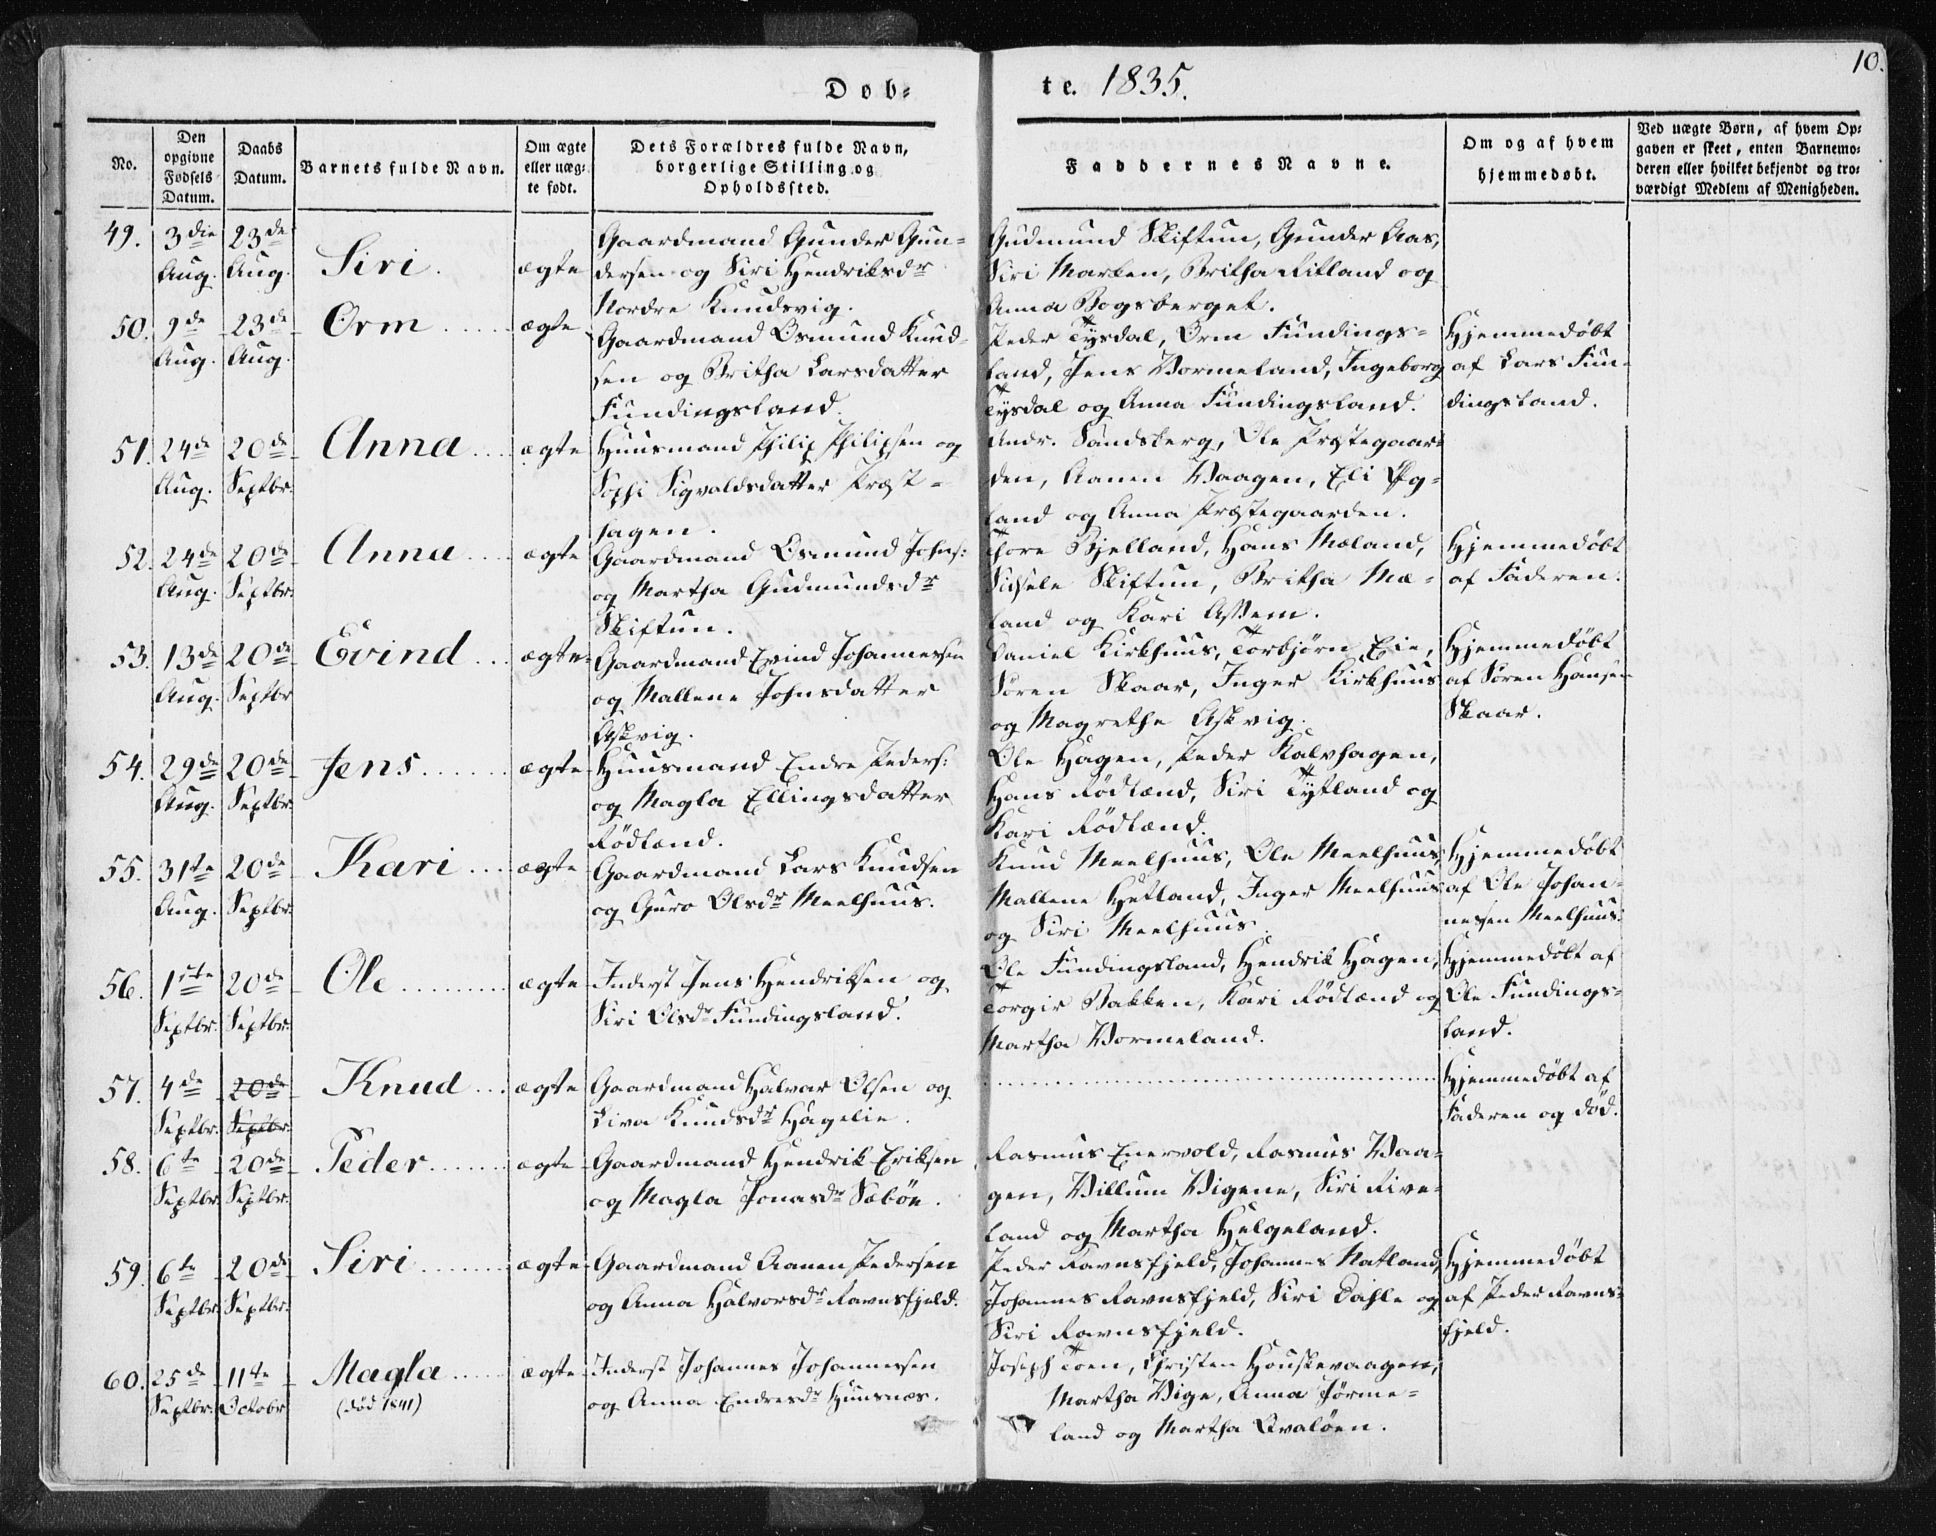 Døb-
te. 1835.
10.
No.
Den opgivne Fødsels Datum.
Daabs Datum.
Barnets fulde Navn.
Om ægte eller uægte født.
Dets Forældres fulde Navn, borgerlige Stilling og Opholdssted.
Faddernes Navne.
Om og af hvem hjemmedøbt.
Ved uægte Børn, af hvem Opgaven er skeet, enten Barnemoderen eller hvilket bekjendt og troværdigt Medlem af Menigheden.
49. 3die Aug. 23de Aug. Siri. ægte
Gaardmand Gunder Gun-
dersen og Siri Hendriksdr
Nordre Knudsvig.
Gudmund Skiftun, Gunder Aas,
Siri Marken, Britha Rikland og
Anna Bogsberget.
50. 9de Aug. 23de Aug. Orm ægte
Gaardmand Osmund Knud-
sen og Britha Larsdatter
Fundingsland.
Peder Tysdal, Orm Fundings-
land, Jens Vormeland, Ingeborg
Tysdal og Anna Fundingsland.
Hjemmedøbt
af Lars Fun-
dingsland.
51. 24de Aug. 20de Septbr. Anna ægte
Huusmand Philip Philipsen og
Sophi Sigvaldsdatter Præst-
hagen.
Andr. Sandsberg, Ole Præstegaar-
den, Aanen Vaagen, Eli
land og Anna Præstegaarden.
52. 24de Aug. 20de Septbr. Anna ægte
Gaardmand Osmund Johns:
og Martha Gudmundsdr
Skiftun.
Thore Bjelland, Hans Mæland,
Sidsele Skiftun, Britha Mæ-
land og Kari
Hjemmedøbt
af Faderen.
53. 13de Aug. 20de Septbr Evind ægte
Gaardmand Evind Johannessen
og Mallene Johnsdatter
Askvig.
Daniel Kirkhuus, Torbjørn Eie,
Sören Skaar, Inger Kirkhuus
og Magrethe Askvig.
Hjemmedøbt
af Sören Hansen
Skaar.
54. 29de Aug. 20de Septbr. Jens ægte
Huusmand Endre Peders:
og Magla Ellingsdatter
Rödlænd.
Ole Hagen, Peder Kalvhagen,
Hans Rödlænd, Siri Tytland og
Kari Rödlænd.
55. 31te Aug. 20de Septbr. Kari ægte
Gaardmand Lars Knudsen
og Guro Olsdr Meelhuus.
Knud Meelhuus, Ole Meelhuus,
Mallene Hetland, Inger Meelhuus
og Siri Meelhuus.
Hjemmedøbt
af Ole Johan-
nessen Meelhuus.
56. 1ste Septbr. 20de Septbr. Ole ægte
Inderst Jens Hendriksen og
Siri Olsdr Fundingsland.
Ole Fundingsland, Hendrik Hagen,
Torgir Bakken, Kari Rödlænd og
Martha Vormeland.
Hjemmedøbt af
Ole Fundings-
land.
57. 4de Septbr. 20de Septbr. Knud ægte
Gaardmand Halvar Olsen og
Liva Knudsdr Hagelie.
Hjemmedøbt af
Faderen og död.
58. 6te Septbr. 20de Septbr. Peder ægte
Gaardmand Hendrik Eriksen
og Magla Jonasdr Sæböe.
Rasmus Enervold, Rasmus Vaa-
gen, Villum Vigene, Siri Rive-
land og Martha Helgeland.
59. 6te Septbr. 20de Septbr. Siri ægte
Gaardmand Aanen Pedersen
og Anna Halvorsdr Ravnsfjeld.
Peder Ravnsfjeld, Johannes Natland,
Johannes Ravnsfjeld, Siri Dahle og
Siri Ravnsfjeld.
Hjemmedøbt
af Peder Ravns-
fjeld.
60. 25de Septbr. 11te Octobr Magla ægte
(död 1841)
Inderst Johannes Johannesen
og Anna Endresdr Huusnæs.
Joseph Toen, Christen Houskevaagen,
Martha Vige, Anna Förme-
land og Martha Qvalöen.